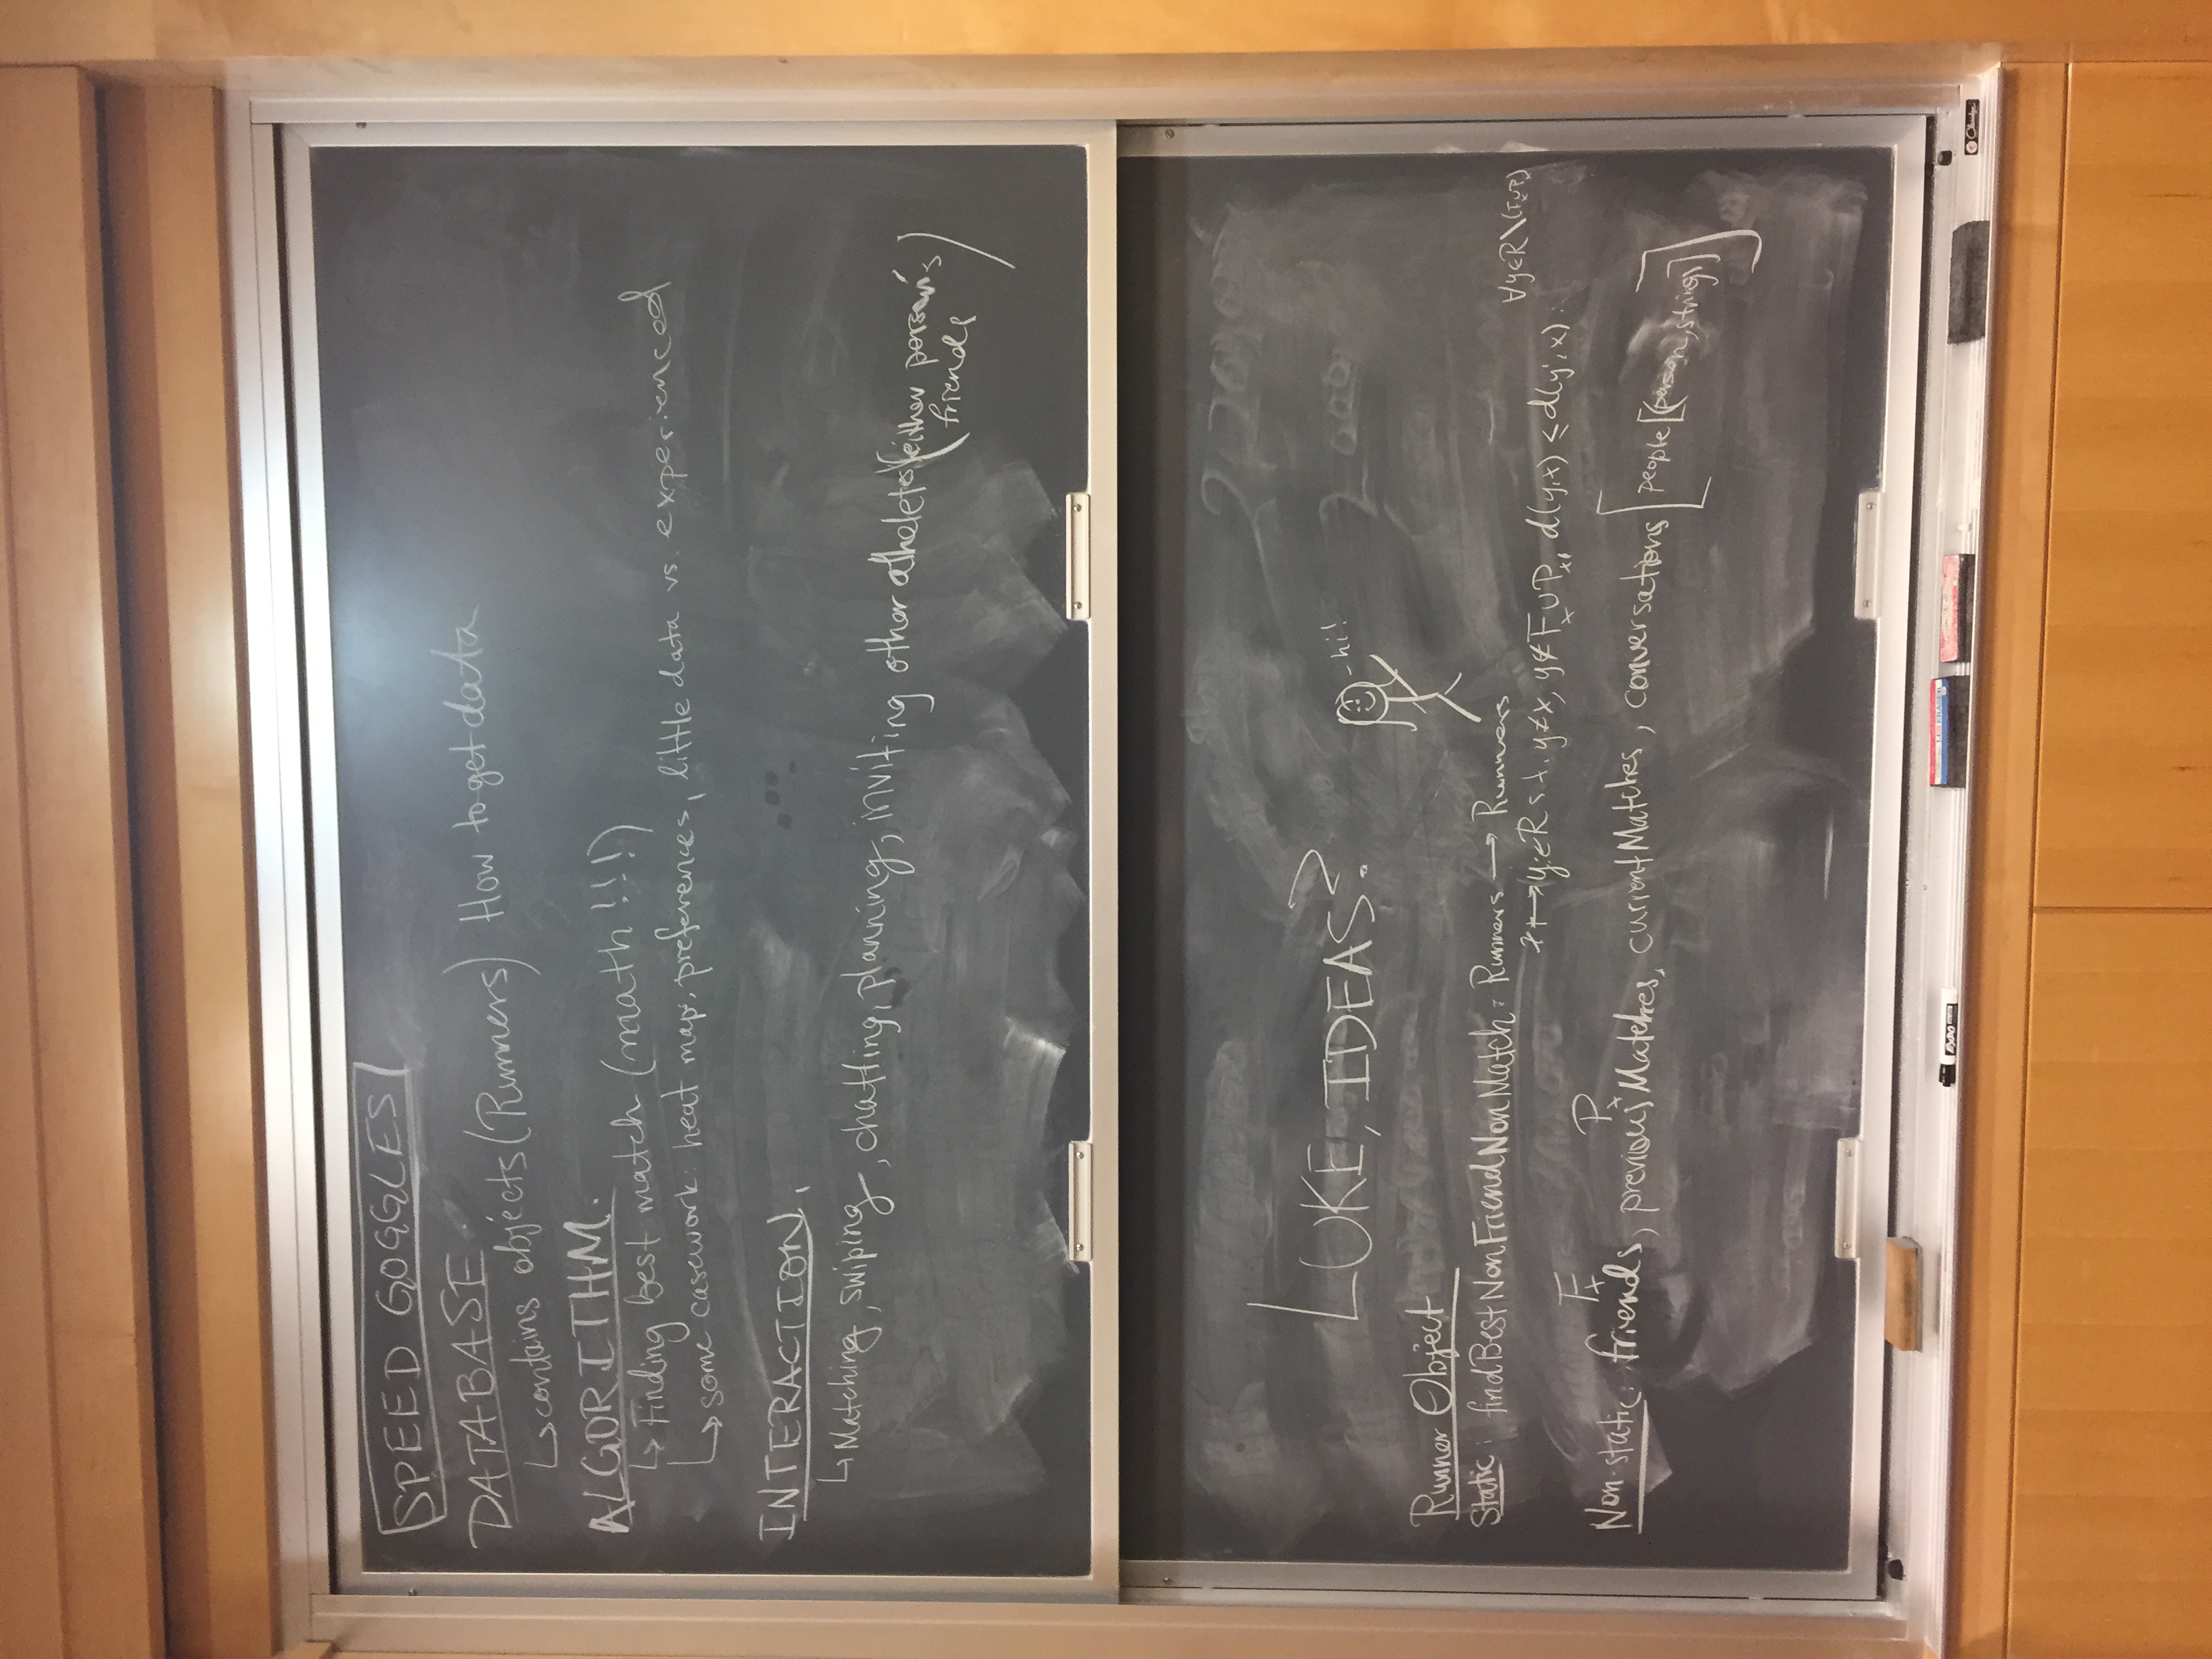 SPEED GOGGLES
DATABASE.
↳contains objects (Runners) How to get data
ALGORITHM.
↳ Finding best match (math!!!)
↳ some casework: heat maps, preferences, little data vs. experienced
INTERACTION.
↳ Matching, swiping, chatting, planning, inviting other atheletes (either person's
friends)
LUKE, IDEAS?
- hi!
Runner Object
Static: findBestNonFriendNonMatch: Runners → Runners
x ↦ y∈R s.t. y≠x, y∉Fₓ∪Pₓ, d(y,x) ≤ d(y',x) ∀y∈R\(Fₓ∪Pₓ)
Fₓ Pₓ
Non-static: friends, previous Matches, currentMatches, conversations [people[(person, string)]]
EXPO
ERASER